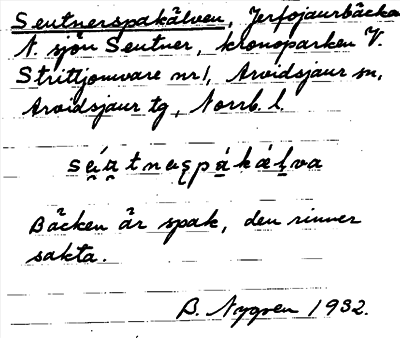 Seutnerspakälven, Jerfojaurbäcken
N. sjön Seutner, kronoparken V.
Strittjomvare nr 1, Arvidsjaur sn,
Arvidsjaur tg, Norrb. l.
Bäcken är spak, den rinner
sakta.
B. Nygren 1932.